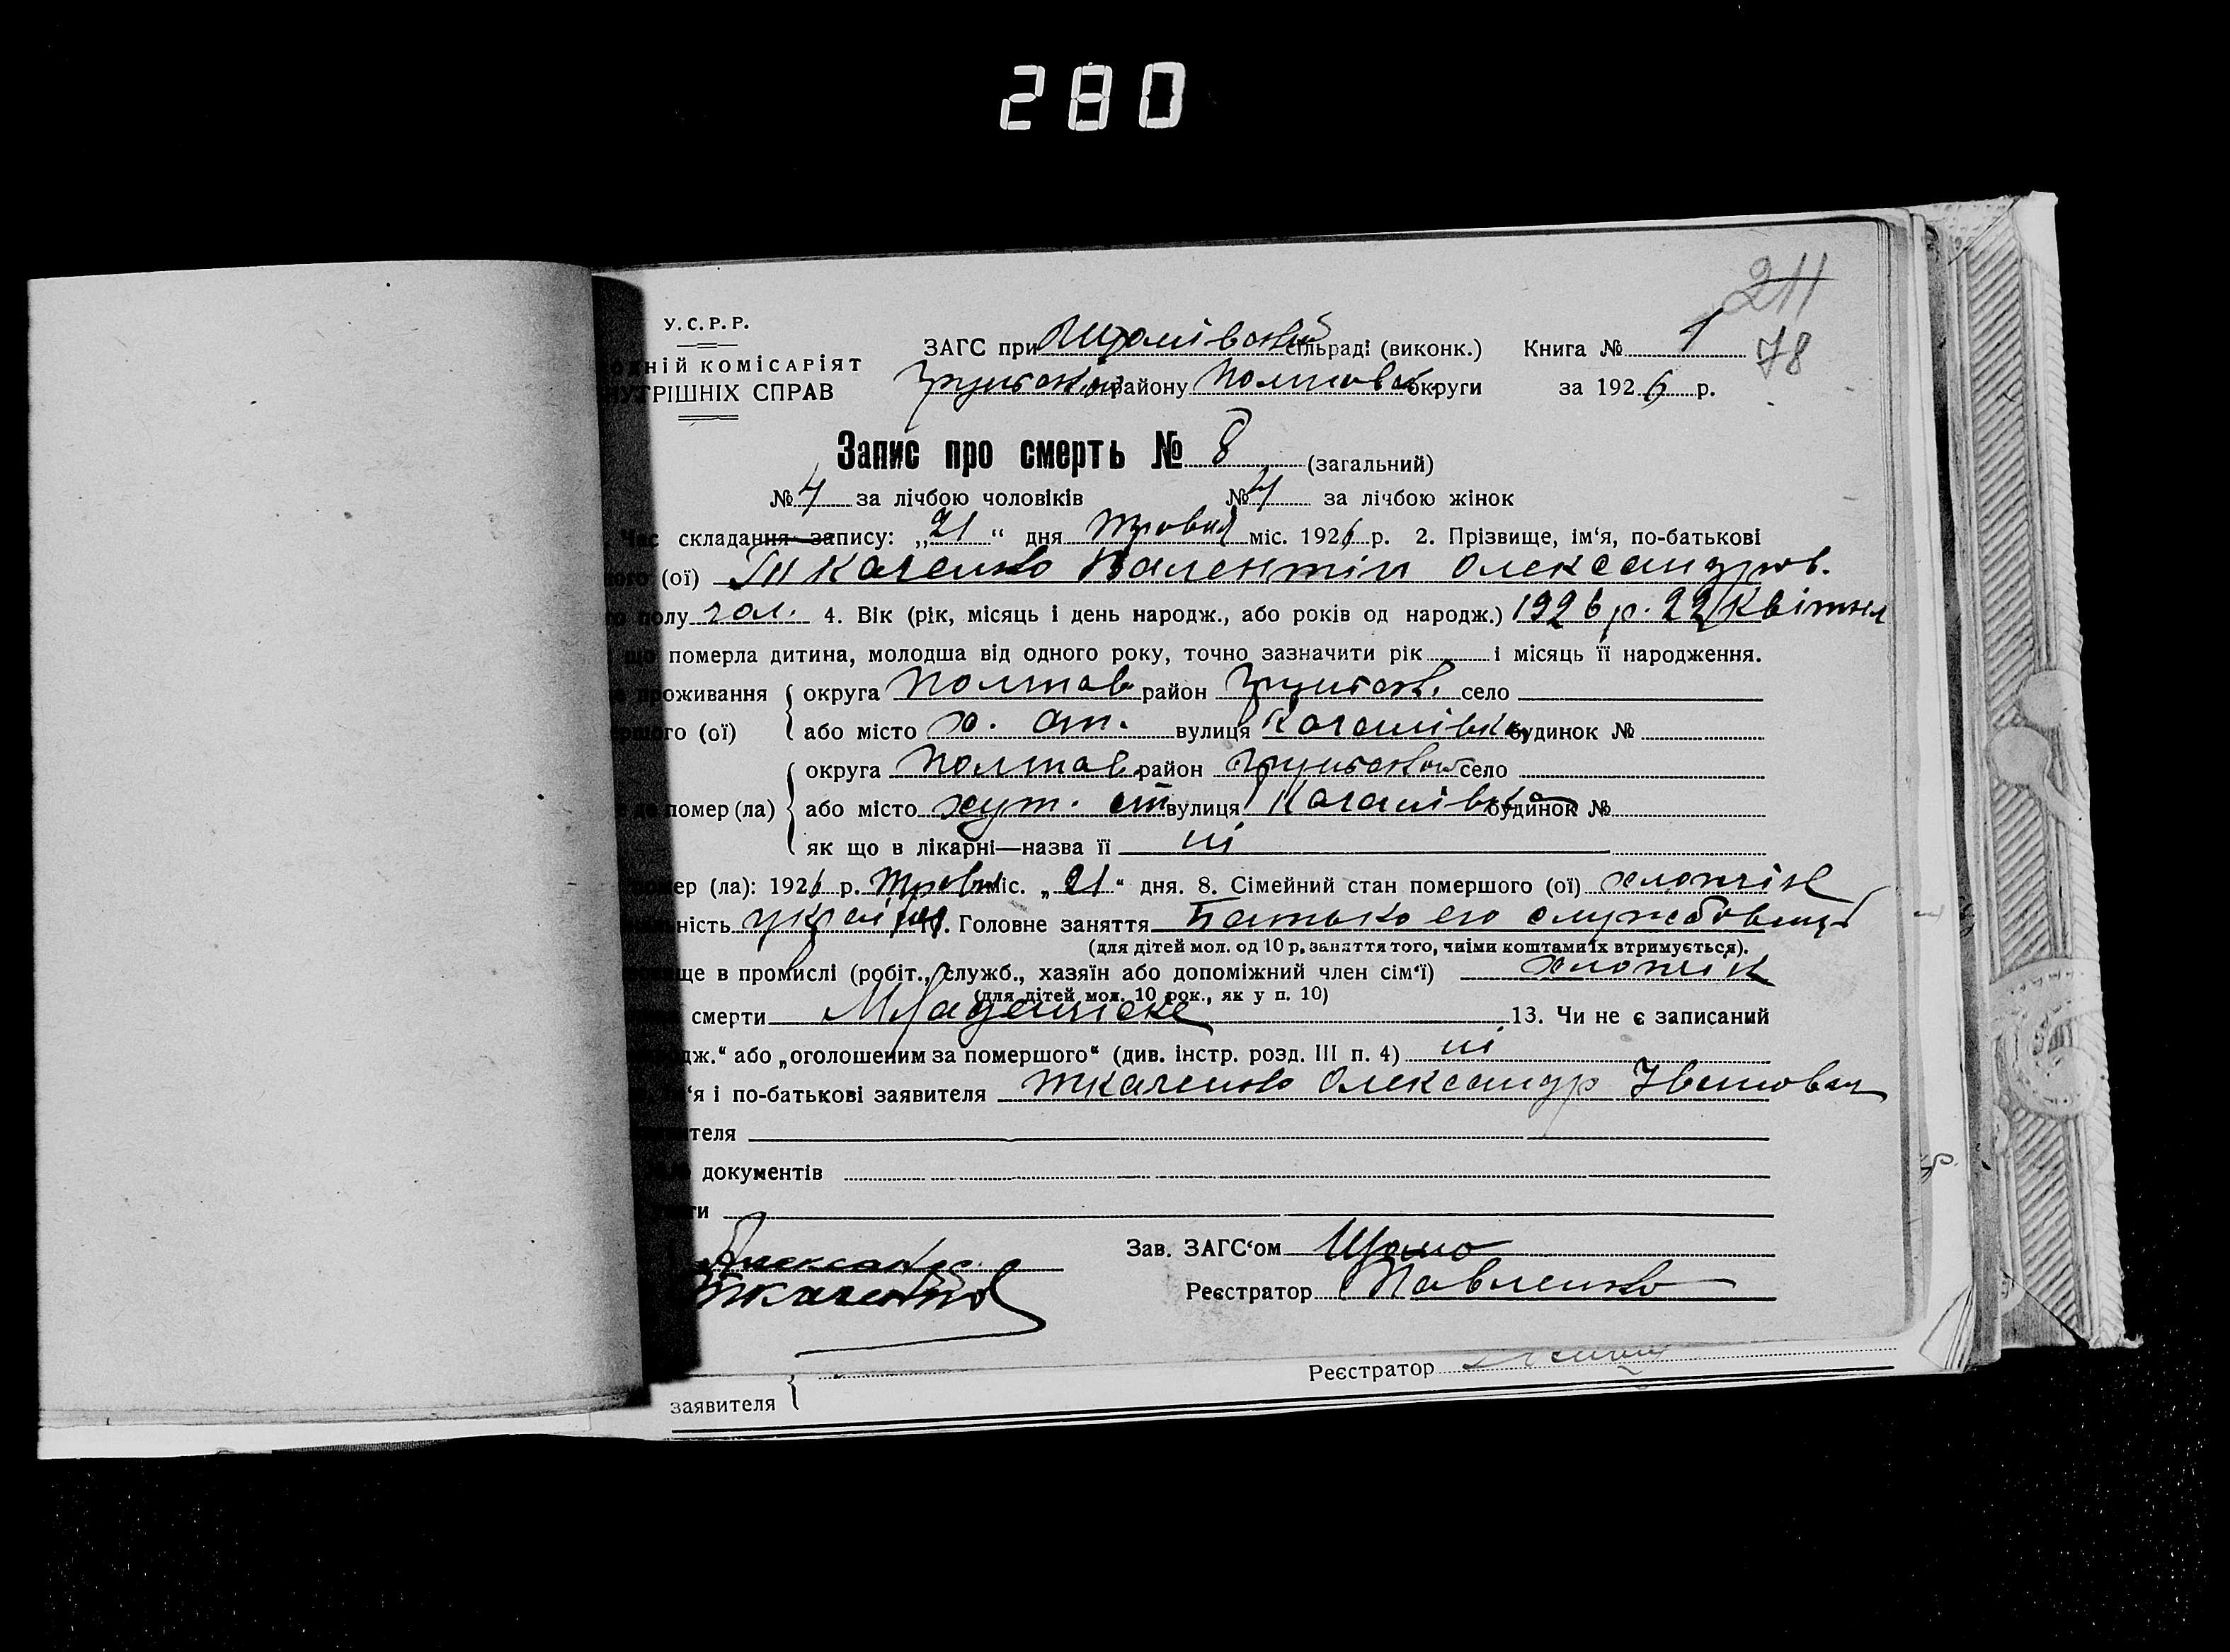 280
211
78
У. С. Р. Р.
ОДНІЙ КОМІСАРІЯТ
НУТРІШНІХ СПРАВ
ЗАГС при сільраді (виконк.) Книга № 1
району Полтавськ округи за 1926 р.
Запис про смерть № 8 (загальний)
№ 4 за лічбою чоловіків № 4 за лічбою жінок
Час складання запису: „21“ дня Травня міс. 1926 р. 2. Прізвище, ім‘я, по-батькові
ого (ої) Ткаченко Валентін Олександров.
полу чол. 4. Вік (рік, місяць і день народж., або років од народж.) 1926 р. 22 Квітня
що померла дитина, молодша від одного року, точно зазначити рік і місяць її народження.
проживання округа Полтав район село
ршого (ої) або місто х. ст. вулиця будинок №
округа Полтав район село
де помер (ла) або місто хут. ст вулиця будинок №
як що в лікарні—назва її ні
помер (ла): 1926 р. Травня міс. „21“ дня. 8. Сімейний стан помершого (ої) хлопчік
ність україн 10. Головне заняття Батько его службовець
(для дітей мол. од 10 р. заняття того, чиїми коштами їх втримується).
ще в промислі (робіт., служб., хазяїн або допоміжний член сім‘ї) хлопчік
(для дітей мол. 10 рок., як у п. 10)
смерти Младенческе 13. Чи не є записаний
дж.“ або „оголошеним за помершого“ (див. інстр. розд. III п. 4) ні
‘я і по-батькові заявителя Ткаченко Олександр Іванович
теля
документів
ти
Александр
Ткаченко
Зав. ЗАГС‘ом
Реєстратор Павленко
Реєстратор
заявителя